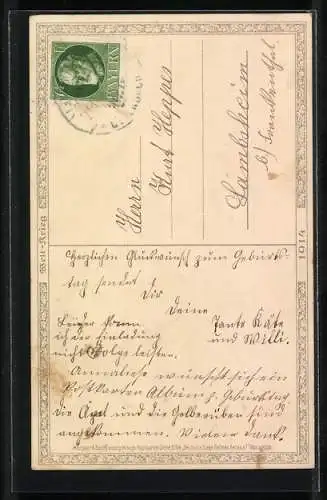 BAYERN
Herrn
Kurt Heppes
Lambsheim
b/ Frankenthal
Welt-Krieg
1914
Herzlichen Glückwunsch zum Geburts-
tag sendet Dir
Deine
Tante Käte
und Willi.
Leider
ich der Einladung
nicht Folge leisten.
Annaliese wünscht sich ein
Postkarten Album z. Geburtstag
die Äpfel und die Gelberüben sind
angekommen. Vielen Dank.